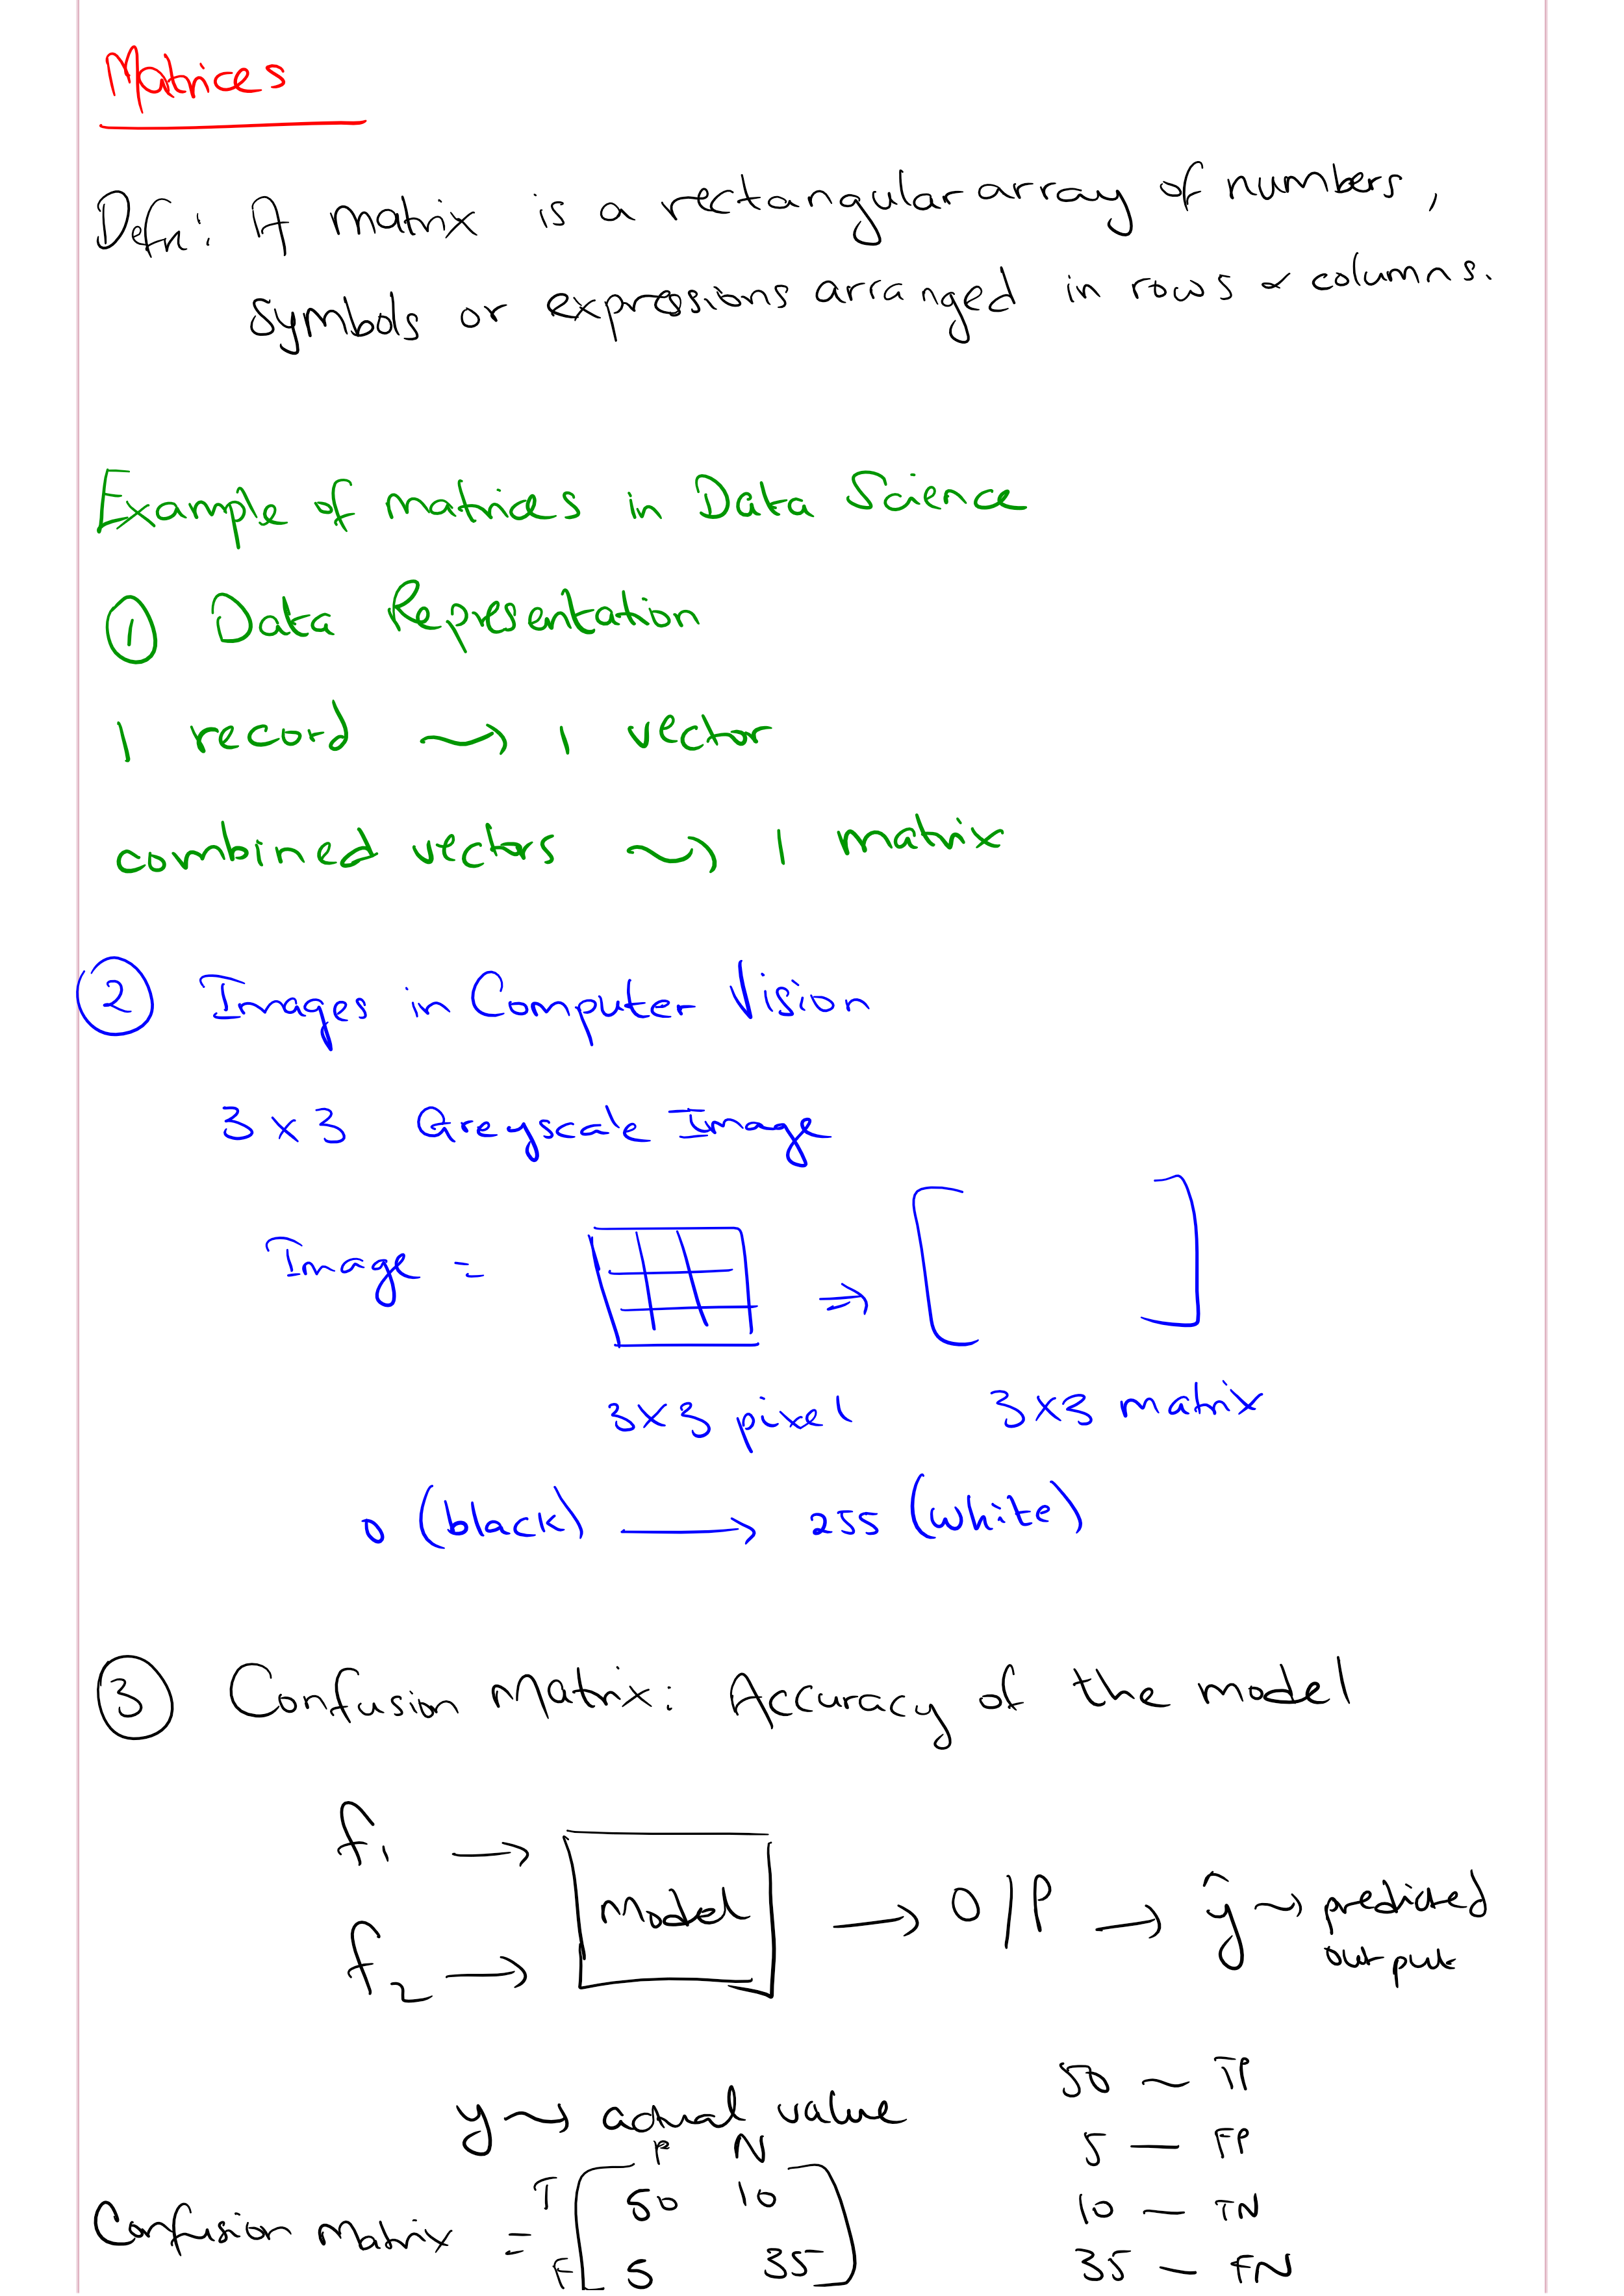 Matrices
Defn: A matrix is a rectangular array of numbers,
symbols or expressions arranged in rows & columns.
Example of matrices in Data Science
1 Data Representation
1 record ~> 1 vector
combined vectors ~> 1 matrix
2 Images in Computer Vision
3 x 3 Greyscale Image
Image = ⇒ [ ]
3x3 pixel 3x3 matrix
0 (black) → 255 (white)
3 Confusion Matrix: Accuracy of the model
f1 →
Model → O/P → ŷ ~> predicted
output
f2 →
y ~> actual value
50 — TP
5 — FP
10 — TN
35 — FN
P N
Confusion Matrix = T [ 50 10
F 5 35 ]